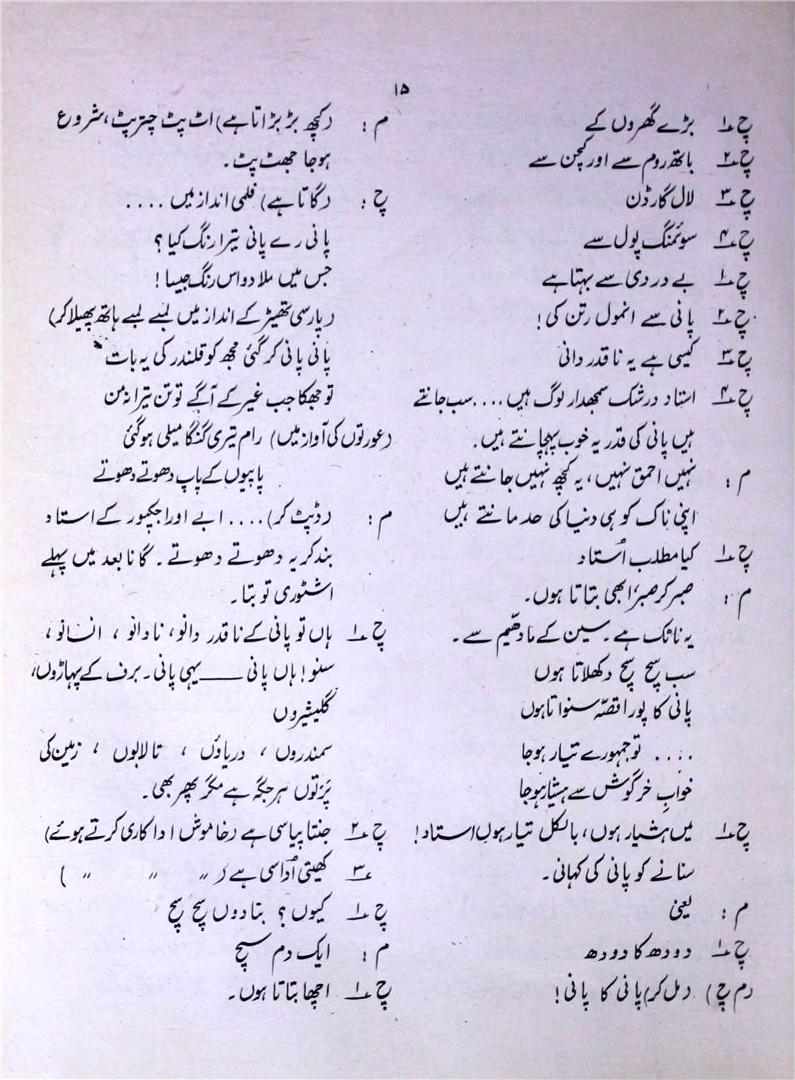 ۱۵
ج۔۱ بڑے گھروں کے
ج۔۲ باتھ روم سے اور کچن سے
ج۔۳ لال گارڈن
ج۔۴ سوئمنگ پول سے
ج۔۱ بے دردی سے بہتا ہے
ج۔۲ پانی سے انمول رتن کی!
ج۔۳ کیسی ہے یہ ناقدر دانی
ج۔۴ استاد درشک سمجھدار لوگ ہیں .... سب جانتے
ہیں پانی کی قدر یہ خوب پہچانتے ہیں،
م : نہیں احمق نہیں، یہ کچھ نہیں جانتے ہیں
اپنی ناک کو ہی دنیا کی حد مانتے ہیں
ج۔۱ کیا مطلب اُستاد
م : صبر کر صبر! ابھی بتاتا ہوں۔
یہ ناٹک ہے۔ سین کے مادھیم سے۔
سب سچ سچ دکھلاتا ہوں
پانی کا پورا قصّہ سنواتا ہوں
.... تو جمہورے تیار ہوجا
خوابِ خرگوش سے ہشیار ہوجا
ج۔۱ میں ہشیار ہوں، بالکل تیار ہوں استاد!
سنانے کو پانی کی کہانی۔
م : یعنی
ج۔۱ دودھ کا دودھ
(م ج) (مل کر) پانی کا پانی!
م : (کچھ بڑبڑاتا ہے) اٹ پٹ چٹ پٹ، شروع
ہوجا جھٹ پٹ۔
ج : (گاتا ہے) فلمی انداز میں ....
پانی رے پانی تیرا رنگ کیا؟
جس میں ملا دو اس رنگ جیسا!
(پارسی تھیٹر کے انداز میں لمبے لمبے ہاتھ پھیلا کر)
پانی پانی کر گئی مجھ کو قلندر کی یہ بات
تو جھکا جب غیر کے آگے تو تن تیرا نہ من
(عورتوں کی آواز میں) رام تیری گنگا میلی ہوگئی
پاپیوں کے پاپ دھوتے دھوتے
م : (ڈپٹ کر) .... ابے او راجکپور کے استاد
بند کر یہ دھوتے دھوتے۔ گانا بعد میں پہلے
اشٹوری تو بتا۔
ج۔۱ ہاں تو پانی کے ناقدر دانو، نادانو ، انسانو ،
سنو! ہاں پانی ــــ یہی پانی۔ برف کے پہاڑوں،
گلیشیروں
سمندروں ، دریاؤں ، تالابوں ، زمین کی
پرتوں ہر جگہ ہے مگر پھر بھی۔
ج۔۲ جنتا پیاسی ہے (خاموش اداکاری کرتے ہوئے)
۔۳ کھیتی اُداسی ہے ( " " " )
ج۔۱ کیوں؟ بتادوں سچ سچ
م : ایک دم سچ
ج۔۱ اچھا بتاتا ہوں۔